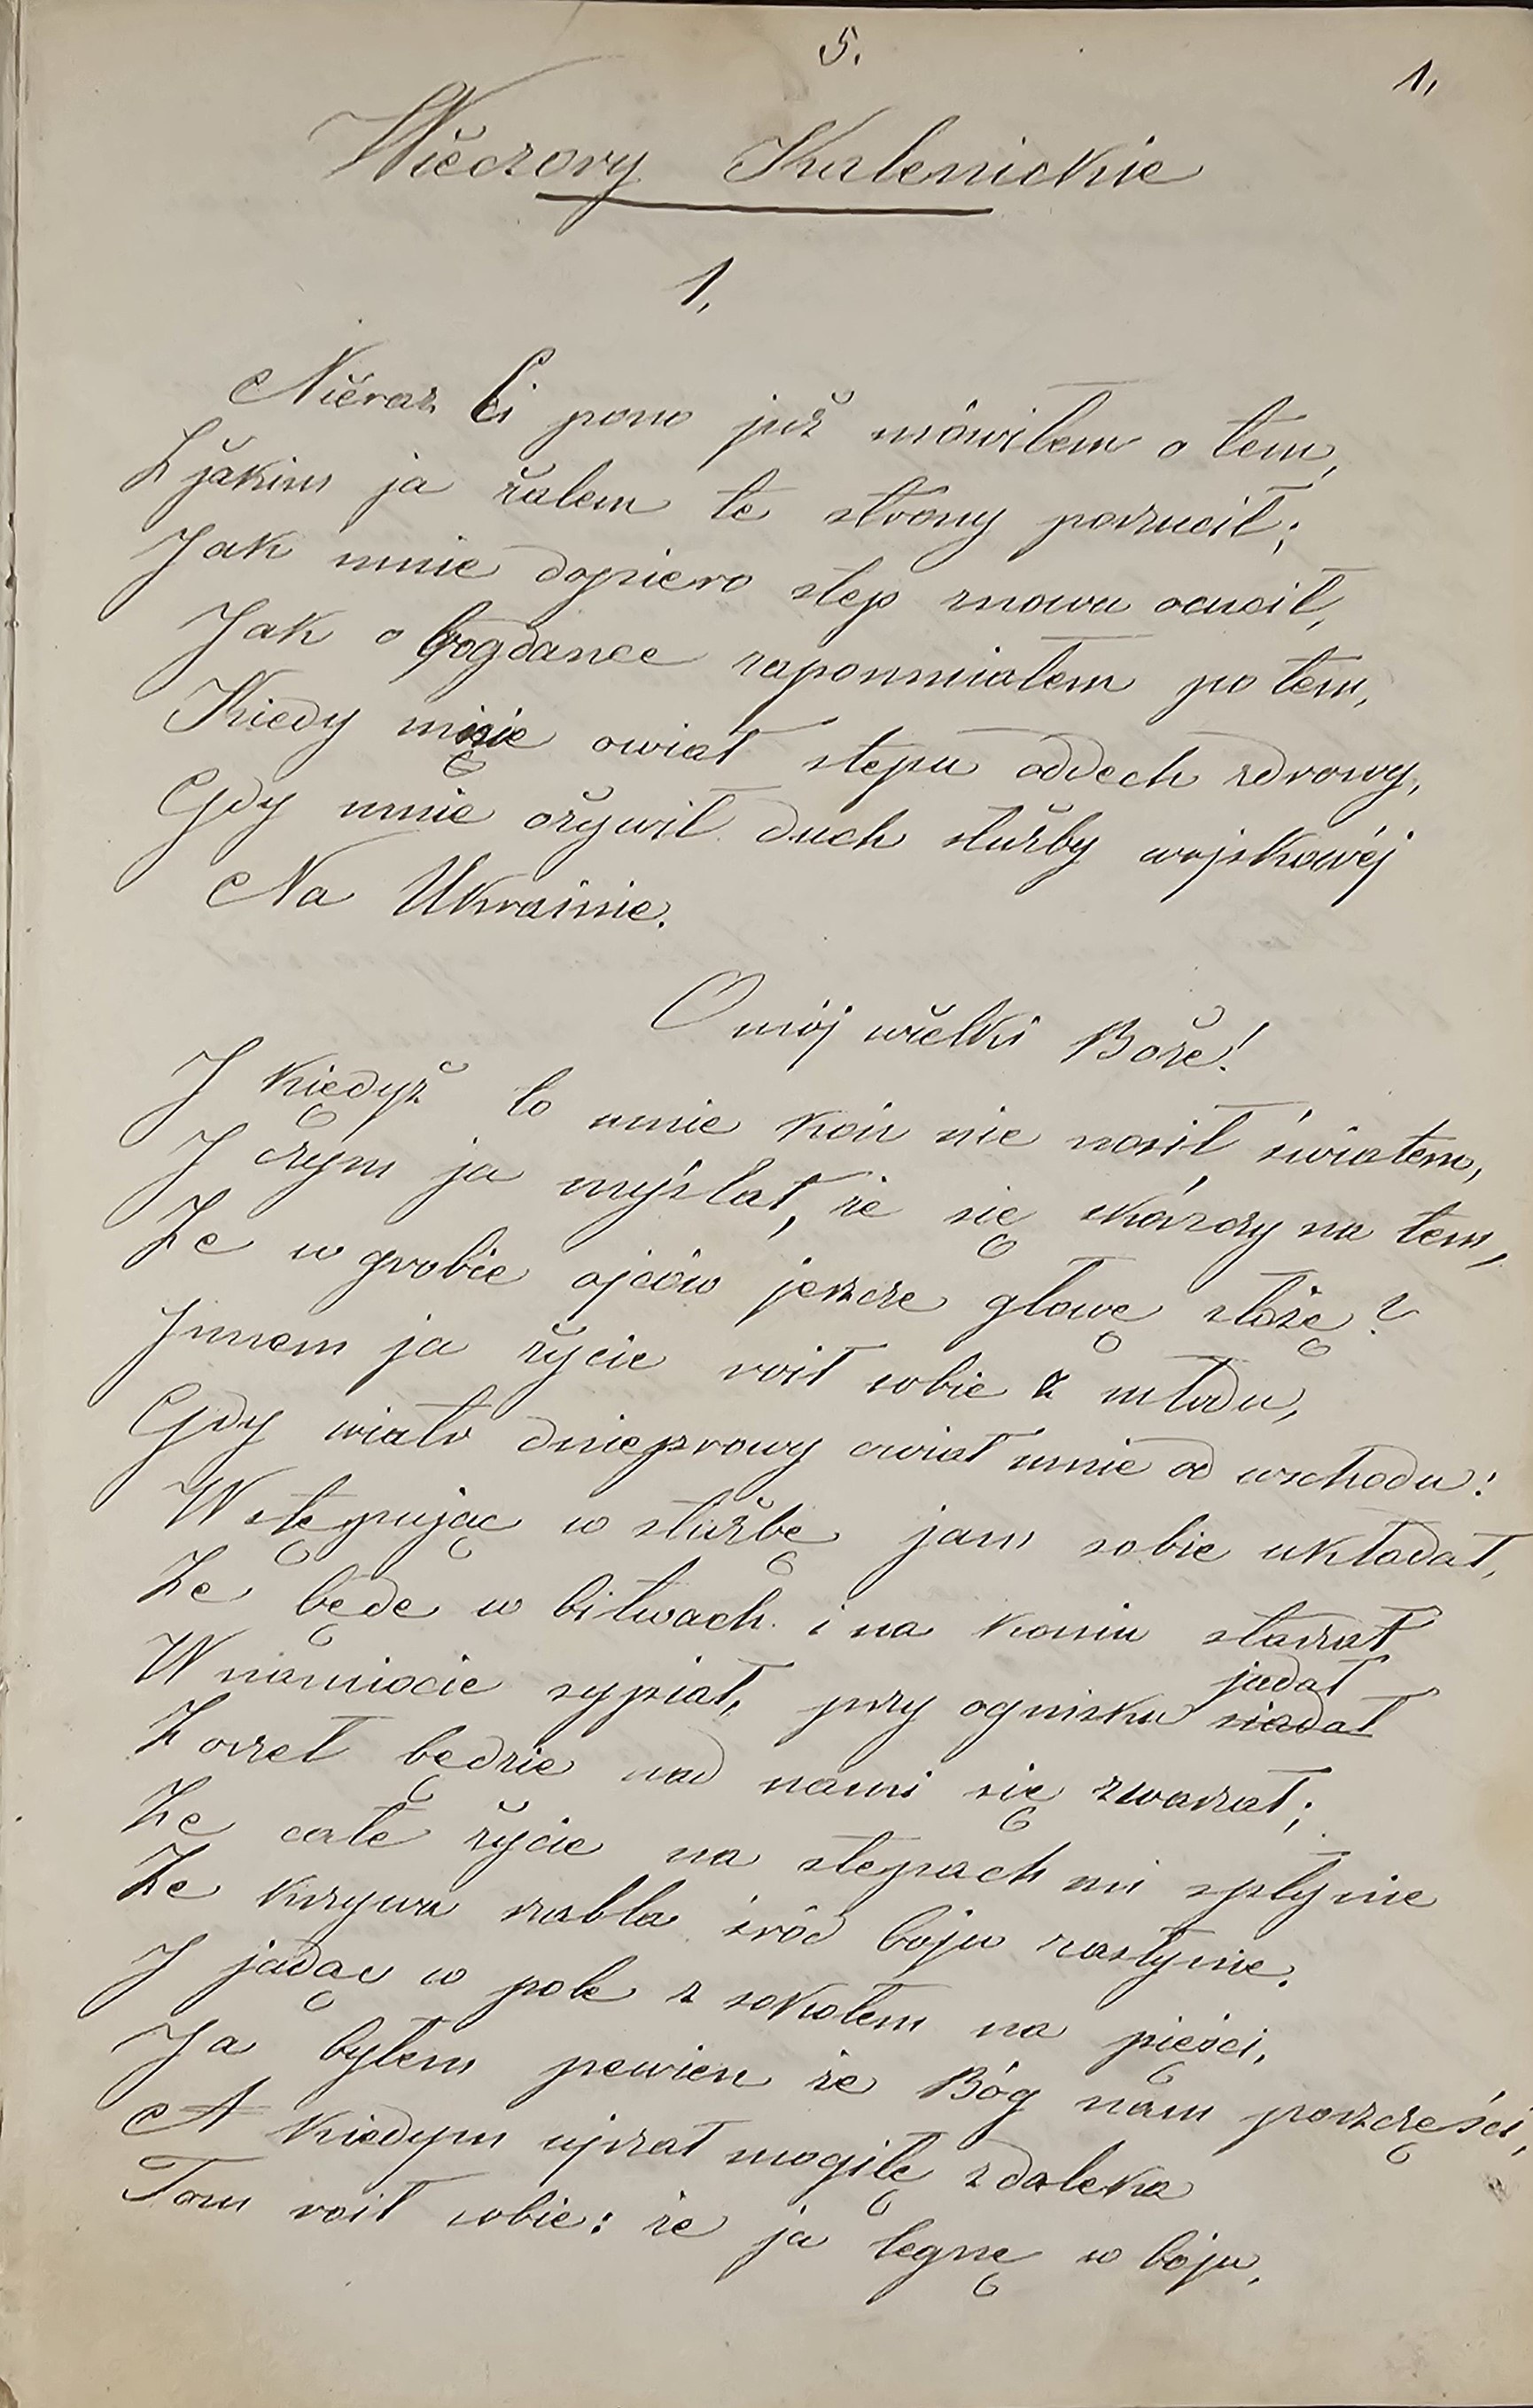 5.
1,
Wieczory Kulenickie
1,
Nieraz Ci pono już mówiłem o tem,
Z jakim ja żalem te strony porzucił;
Jak mnie dopiero step znowu ocucił,
Jak o bogdance zapomniałem po tem,
Kiedy mnie owiał stepu oddech zdrowy,
Gdy mnie ożywił duch służby wojskowéj
Na Ukrainie.
O mój wielki Boże!
I kiedyż to mnie koń nie nosił światem,
I czym ja myślał, że się skończy na tem,
Że w grobie ojców jeszcze głowę złożę?
Innem ja życie roił sobie z młodu,
Gdy wiatr dnieprowy owiał mnie od wschodu:
Wstępując w służbę jam sobie układał,
Że będę w bitwach i na koniu starzał
W namiocie sypiał, przy ognisku siadał
jadał
Z orzeł będzie nad nami się zwarzał;
Że całe życie na stepach mi spłynie
Że krzywa szabla śród boju zasłynie.
I jadąc w pole z sokołem na pięści,
Ja byłem pewien że Bóg nam poszczęści,
A kiedym ujrzał mogiłę zdaleka
Tom roił sobie: że ja legnę w boju,